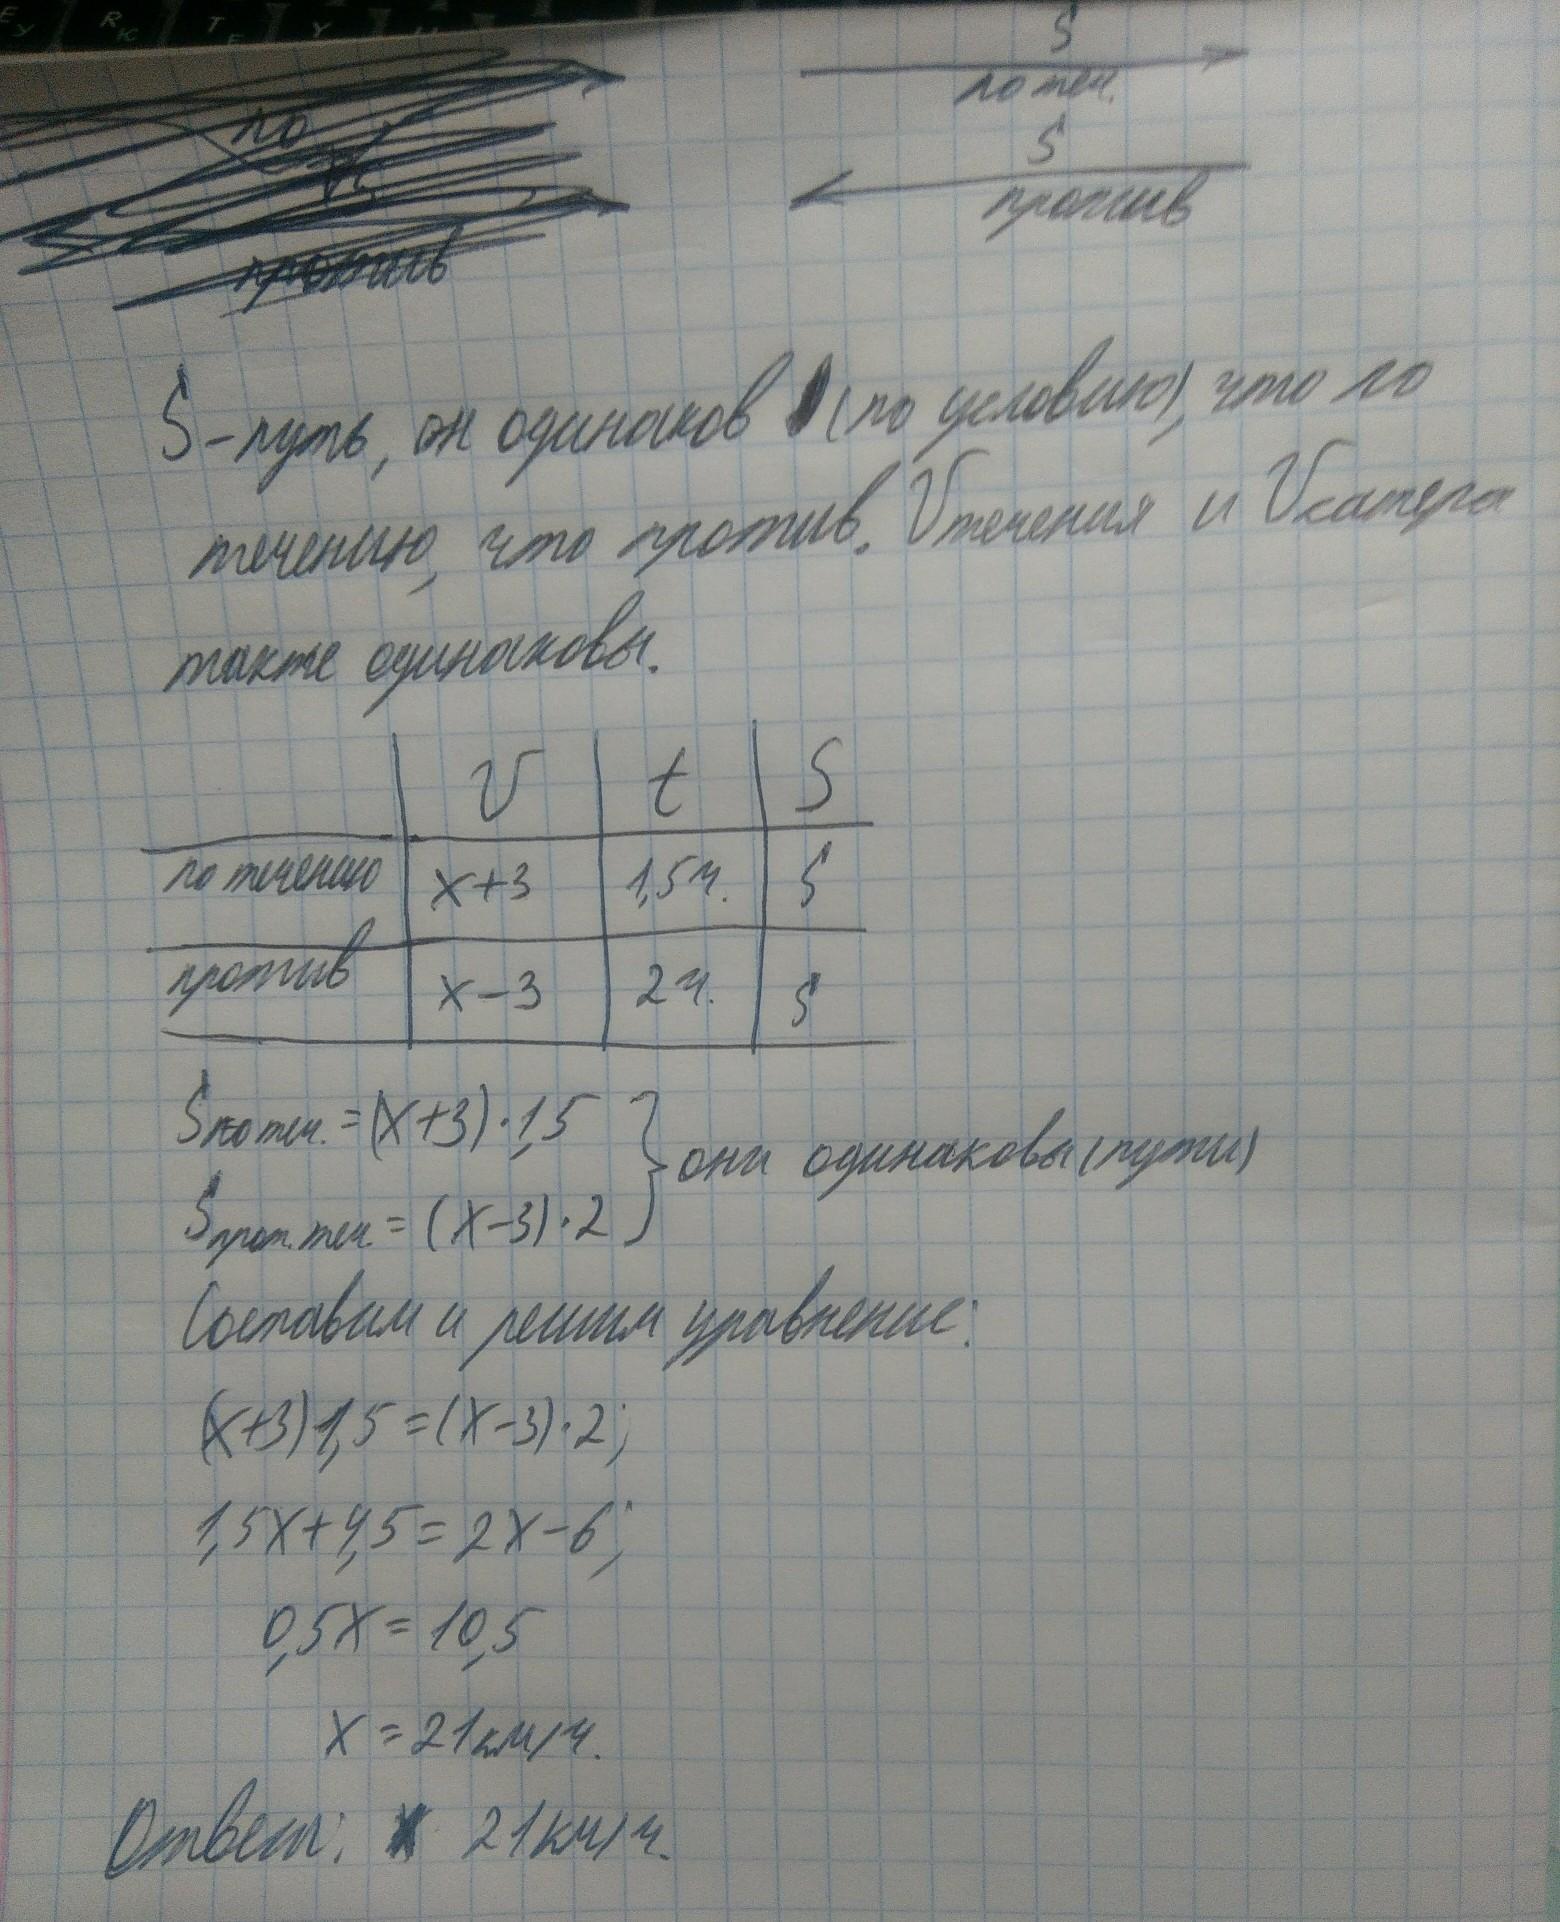 S
по теч.
S
против
по
против
S – путь, он одинаков (по условию), что по
течению, что против. Vтечения и Vкатера
также одинаковы.
V t S
по течению x+3 1,5ч. S
против x–3 2ч. S
Sпо теч. = (x+3)·1,5
они одинаковы (пути)
Sпрот. теч. = (x–3)·2
Составим и решим уравнение:
(x+3)1,5=(x–3)·2;
1,5x+4,5=2x–6;
0,5x=10,5
x=21км/ч.
Ответ: 21км/ч.